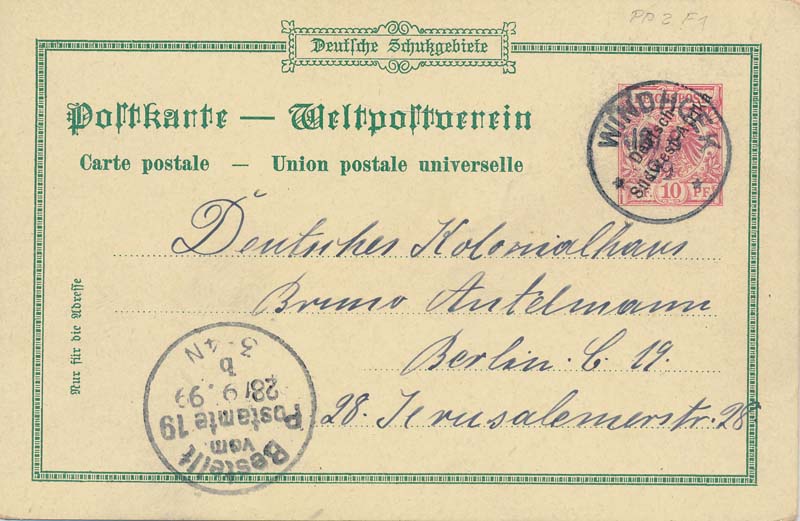 PP 2 F1
Deutsche Schutzgebiete
Postkarte — Weltpostverein
Carte postale — Union postale universelle
REICHSPOST
Deutsch-
Südwest-Afrika
10 PF
WINDHOEK
Deutsches Kolonialhaus
Bruno Antelmann
Berlin. C. 19
28. Jerusalemerstr. 28
Nur für die Adresse
Bestellt
vom
Postamte 19
28/9.99
b
3-4N